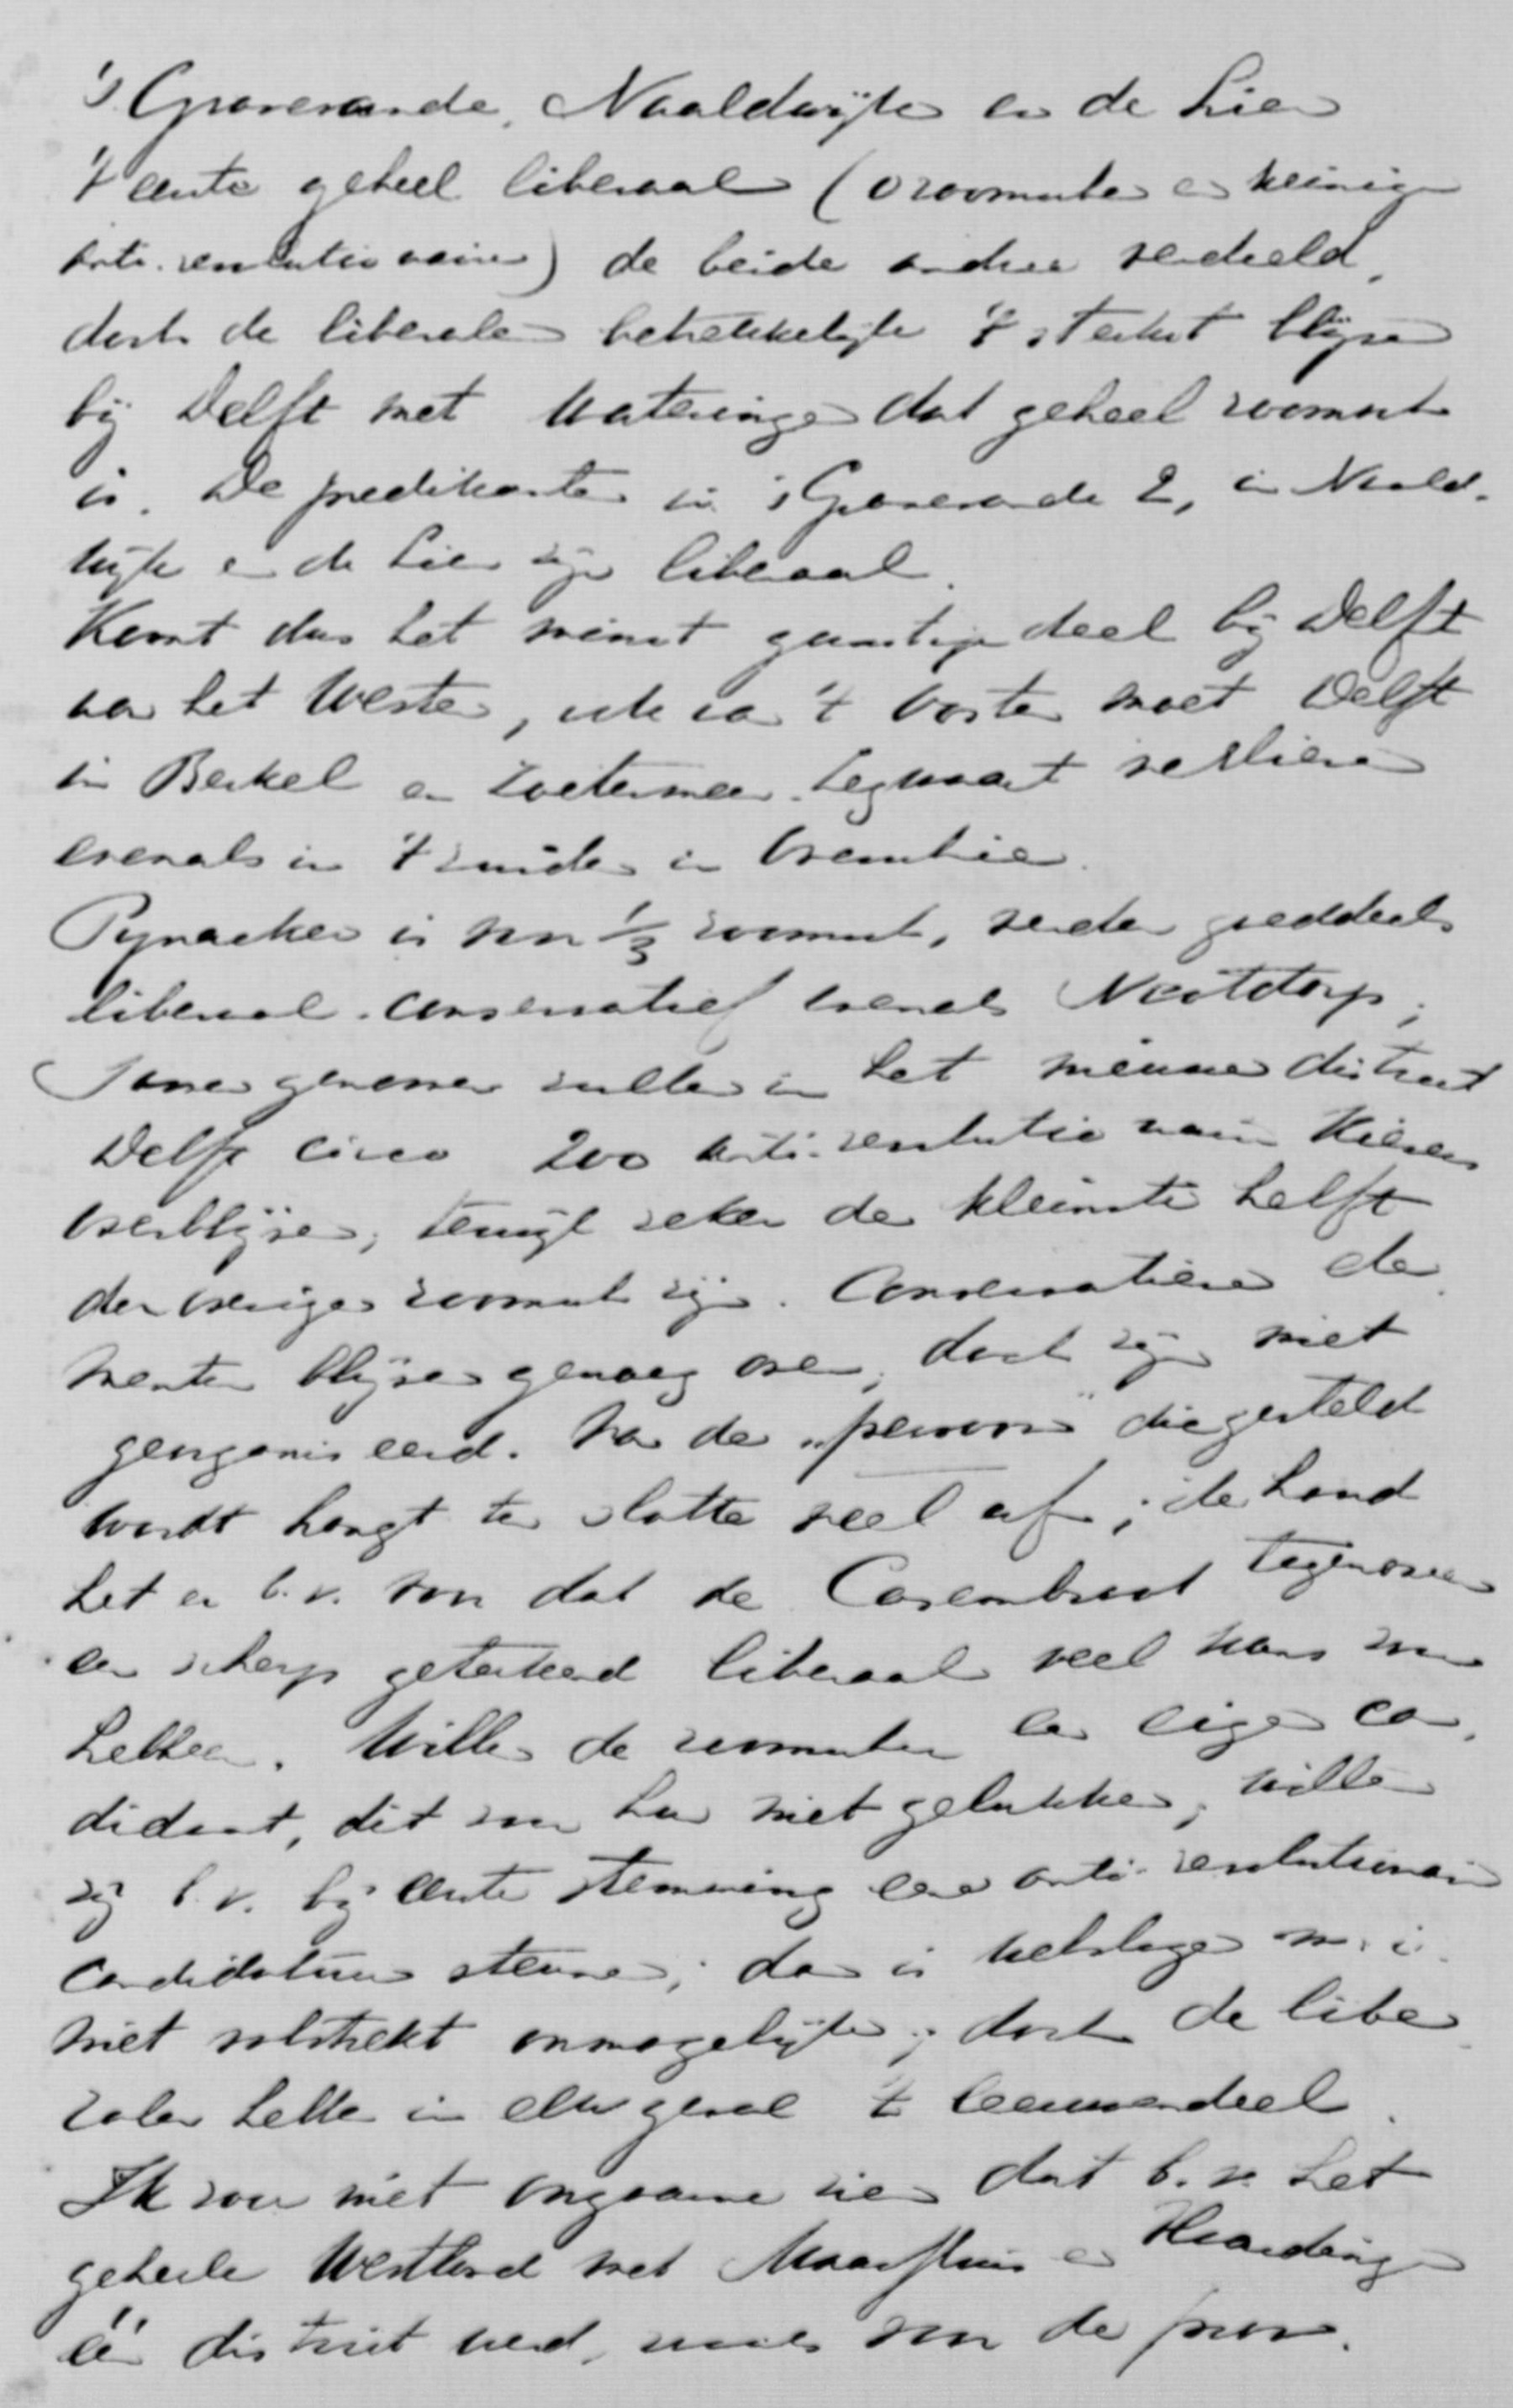 'sGravesande, Naaldwijk en de Lier
't eerste geheel liberaal (0 roomsch en weinig
anti-revolutionair) de beide andere verdeeld,
doch de liberalen betrekkelijk 't sterkst blijven
bij Delft met Wateringen dat geheel roomsch
is. De predikanten in 'sGravesande 2, in Naald-
wijk en de Lier zijn liberaal.
Komt dus het minst gunstige deel bij Delft
van het Westen, ook van 't Oosten moet Delft
in Berkel en Zoetermeer-Zegwaart verliezen
evenals in 't zuiden in Overschie.
Pynacker is voor 1/3 roomsch, verder goeddeels
liberaal-conservatief evenals Nootdorp;
Samengenomen zullen in het nieuwe district
Delft circa 200 anti-revolutionair kiezers
overblijven, terwijl zeker de kleinste helft
der overigen roomsch zijn. Conservatieve ele
menten blijven genoeg over, doch zijn niet
georganiseerd. Van de „persoon" die gesteld
wordt hangt ten slotte veel af; ik houd
het er b.v. voor dat de Casembroot tegenover
een scherp getekend liberaal veel kans zou
hebben. Willen de roomschen een eigen can-
didaat, dit zou hun niet gelukken; willen
zij b.v. bij eerste stemming een anti-revolutionair
candidatuur steunen; dan is welslagen m.i.
niet volstrekt onmogelijk; doch de libe
ralen hebben in elk geval 't leeuwendeel.
Ik zou niet ongaarne zien dat b.v. het
geheele Westland met Maassluis en Vlaardingen
één district werd, zooals voor de prov.